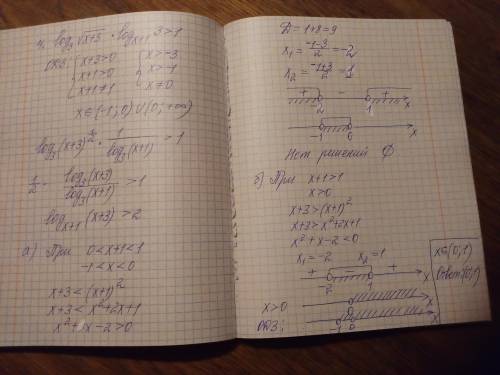 4. log₃√(x+3) · log_{x+1} 3 > 1
ОДЗ: { x+3>0 { x>-3
x+1>0 x>-1
x+1≠1 x≠0
x∈(-1; 0)∪(0; +∞)
log₃(x+3)^{1/2} · 1/log₃(x+1) > 1
1/2 · log₃(x+3)/log₃(x+1) > 1
log_{x+1}(x+3) > 2
а) При 0<x+1<1
-1<x<0
x+3<(x+1)²
x+3<x²+2x+1
x²+x-2>0
Д=1+8=9
x₁ = (-1-3)/2 = -2
x₂ = (-1+3)/2 = 1
+ - +
-2 1 x
-1 0 x
Нет решений ∅
б) При x+1>1
x>0
x+3>(x+1)²
x+3>x²+2x+1
x²+x-2<0
x₁=-2 x₂=1
+ - +
-2 1 x
x>0 x
ОДЗ: -1 0 x
x∈(0;1)
Ответ: (0;1)